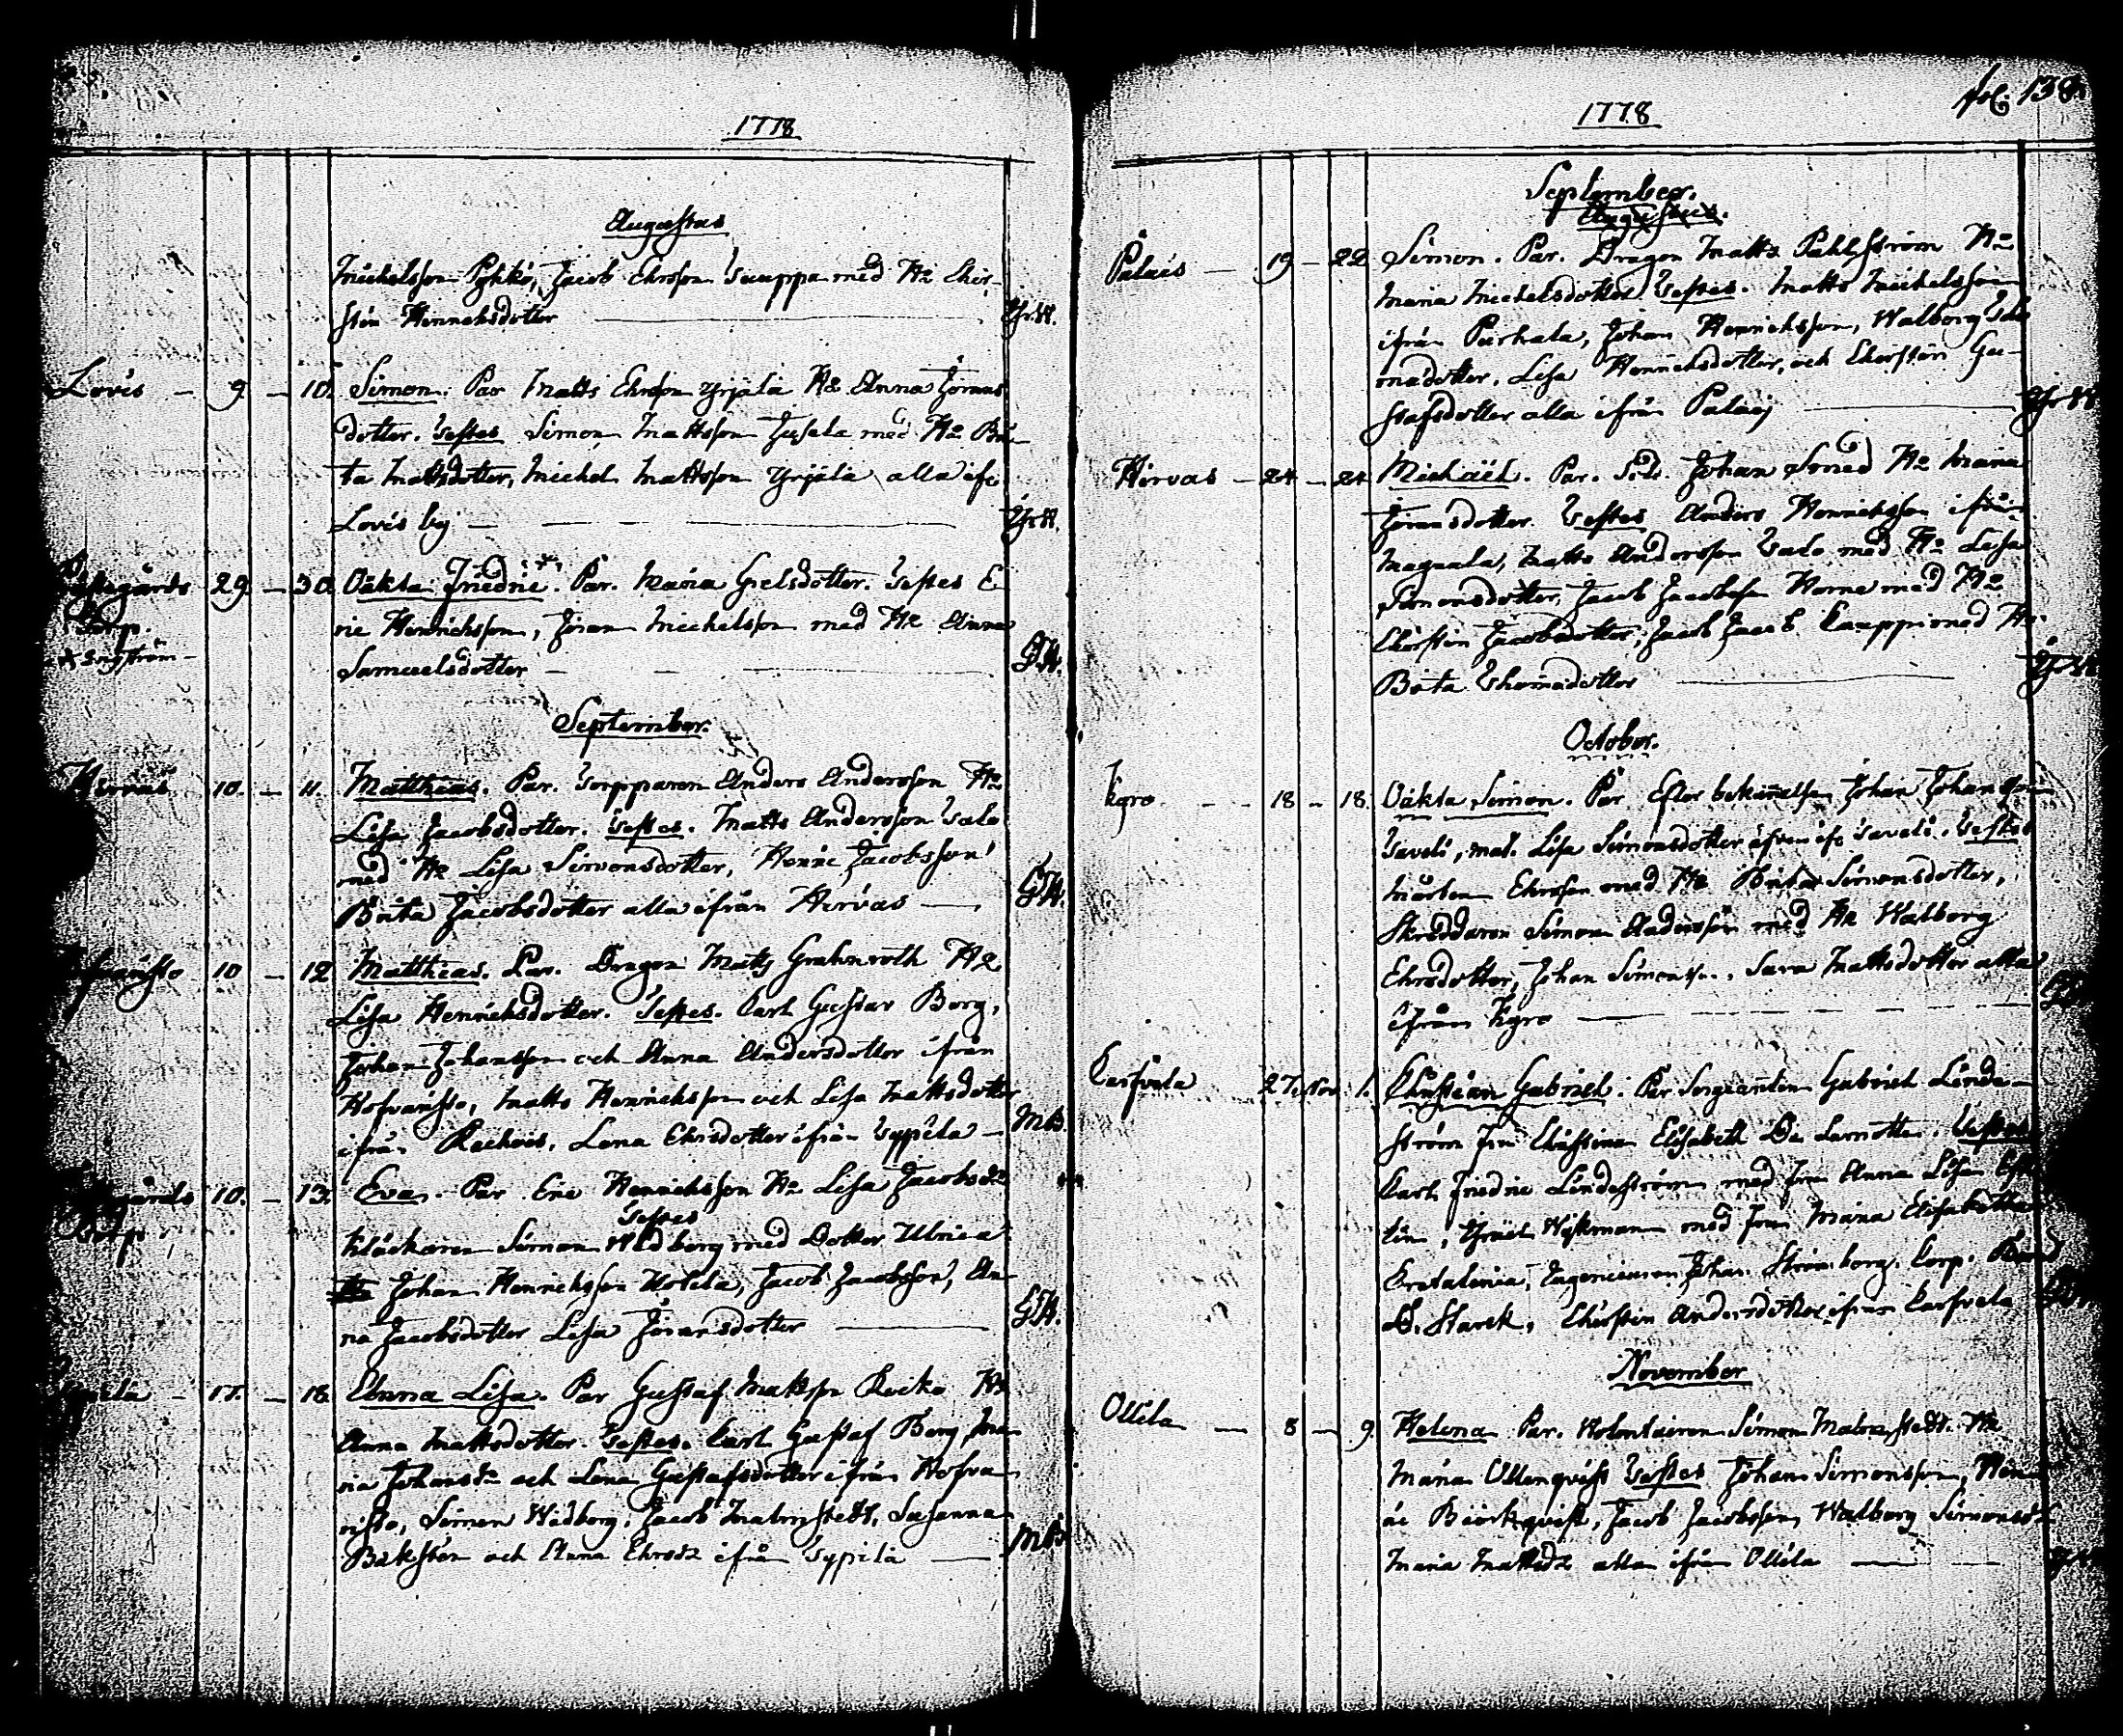 1778
Augustus
Michelsson Pyhkö, Jacob Ehrsson Kauppa med H:o Cher-
stin Henrichsdotter
Lovis - 9 - 10. Simon. Par Matts Ehrsson Yrjälä H:o Anna Jörans
dotter. Testes Simon Mattsson Jusela med H:o Bri-
ta Mattsdotter, Michel Mattsson Yrjälä alla ifr.
Lovis by
29 - 30 Oäkta Friedric. Par. Maria Grelsdotter. Testes E
ric Henrichsson, Jöran Michelsson med H:o Anna
torp.
Samuelsdotter G.H.
September.
Hirvas 10. - 11. Matthias. Par. Sorpparen Anders Andersson H:o
Lisa Jacobsdotter. Testes. Matts Andersson Salo
med H:o Lisa Simonsdotter, Henric Jacobsson
Brita Jacobsdotter alla ifrån Hirvas G.H.
10 - 12 Matthias. Par. Dragon Matts Grahnroth H:o
Lisa Henrichsdotter. Testes. Carl Gustav Berg,
Johan Johansson och Anna Andersdotter ifrån
Hofvinsto, Matts Henrichsson och Lisa Mattsdotter
ifrån Rechois, Lena Ehrsdotter ifrån Sypilä M.B.
10. - 13. Eva. Par Eric Henrichsson H:o Lisa Jacobsd:r
Testes
Klåckaren Simon Widberg med Dotter Ulrica
Johan Henrichsson Kotila, Jacob Jacobsson, An-
na Jacobsdotter Lisa Jöransdotter G.H.
17. - 18. Anna Lisa. Par Gustaf Mattsson Kocko H:o
Anna Mattsdotter. Testes. Carl Gustaf Berg, Ma-
ria Johansd:r och Lena Gustafsdotter ifrån Hofva-
nisto, Simon Widberg, Jacob Malmstedt, Susanna
Bäkstén och Anna Ehrsd:r ifrån Sypilä M.B.
fol. 138.
1778
September.
Augustus.
Palais - 19 - 22 Simon. Par. Dragon Matts Pahlström H:o
Maria Michelsdotter Testes. Matts Michelsson
ifrån Parhala, Johan Henrichsson, Walborg
madotter, Lisa Henrichsdotter, och Cherstin Gu-
stafsdotter alla ifrån Palaij
Hirvas - 24 - 24 Michäel. Par. Johan Smed H:o Maria
Jöransdotter. Testes Anders Henrichsson ifrån
Magnala, Matts Andersson Salo med H:o Lisa
Simonsdotter, Jacob Jacobsson Horne med H:o
Cherstin Jacobsdotter, Jacob Jacob Kauppi med H:o
Brita Thomadotter
October.
Kyro - - 18 - 18. Oäkta Simon. Par Efter bekännelsen Johan Johansson
Saveli, mat. Lisa Simonsdotter äfven ifr. Saveli. Testes
Mårten Ehrsson med H:o Brita Simonsdotter,
Skräddaren Simon Andersson med H:o Walborg
Ehrsdotter, Johan Simonss., Sara Mattsdotter alla
ifrån Kyro
Karfvela 27. Nov. 1. Christian Gabriel. Par Sergeanten Gabriel Linde-
ström Fru Christina Elisabeth De Lamotte. Testes
Carl Friedric Lindeström med Fru Anna Lisa
lin, Israel Wikman med Fru Maria Elisabetha
Cratalinia, Ingenieuren Johan Strömborg, Corp.
D. Starck, Cherstin Andersdotter ifrån Karfvela
November
Ollila - 8 - 9 Helena Par. Volontairen Simon Malmstedt. H:o
Maria Ullenqvist Testes Johan Simonsson, Hen-
ric Biörkqvist, Jacob Jacobsson, Walborg Simonsd:r
Maria Mattsd:r alla ifrån Ollila